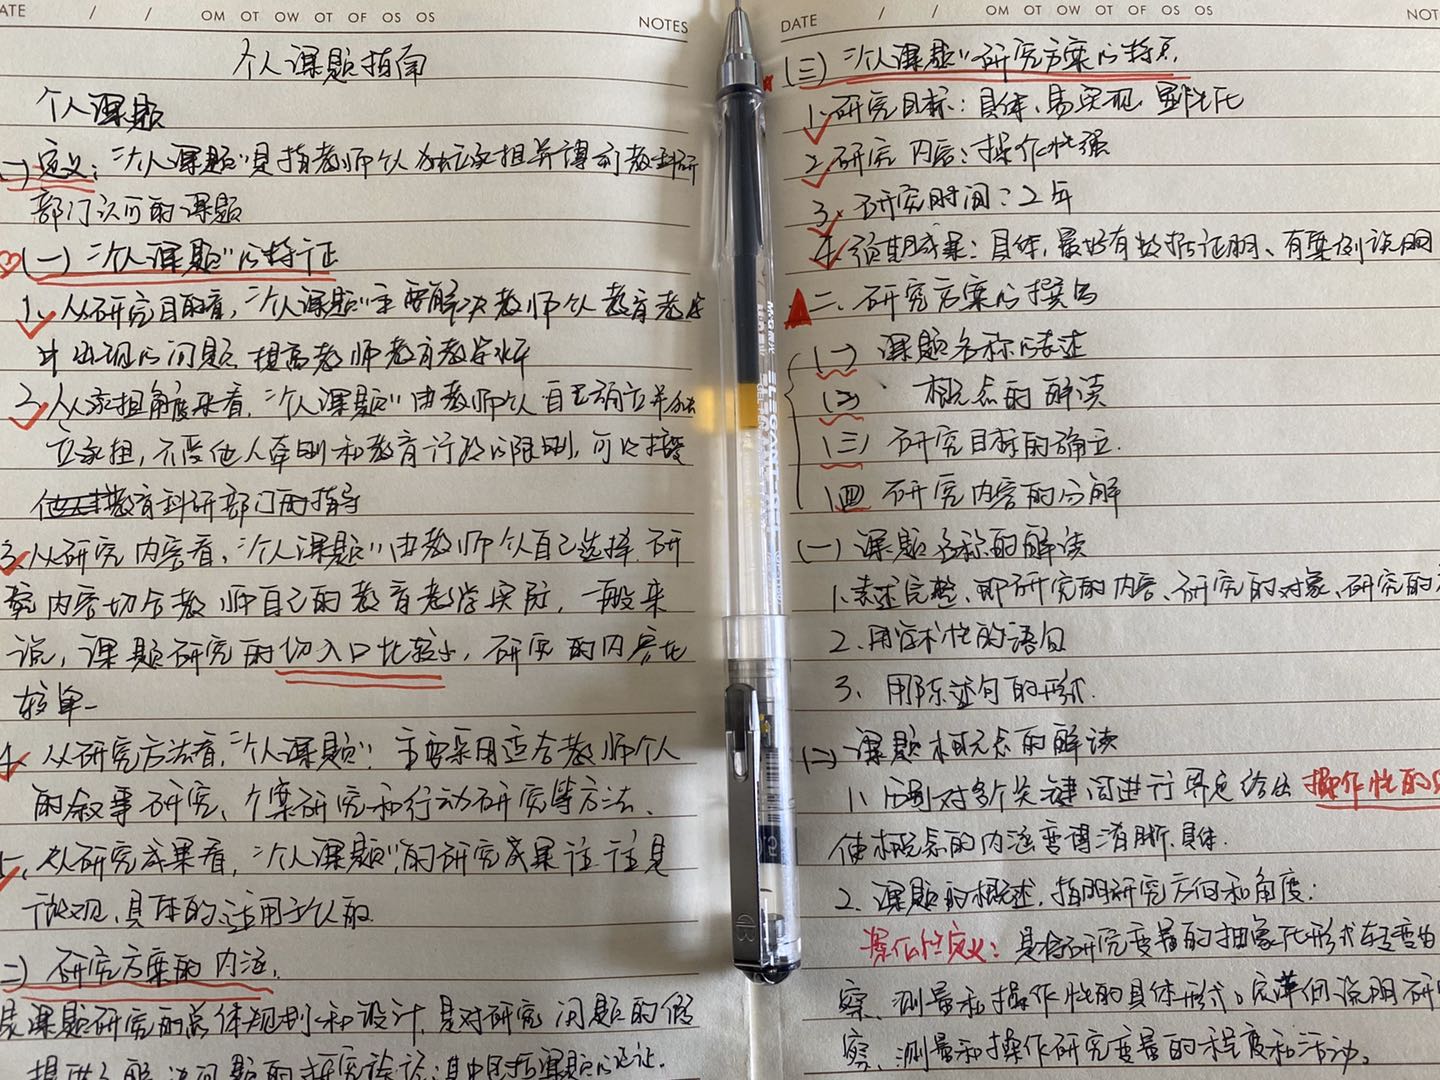 OM OT OW OT OF OS OS
NOTES
个人课题指南
个人课题
定义：“个人课题”是指教师个人独立承担并得到教科研
部门认可的课题
(一)“个人课题”的特征
1、从研究目的看，“个人课题”主要解决教师个人教育教学
中出现的问题 提高教师教育教学水平
2、从承担角度来看，“个人课题”由教师个人自己确立并独
立承担，不受他人牵制和教育行政的限制，可以接受
教育科研部门的指导
3、从研究内容看，“个人课题”由教师个人自己选择 研
究内容切合教师自己的教育教学实际，一般来
说，课题研究的切入口比较小，研究的内容比
较单一
4、从研究方法看，“个人课题”主要采用适合教师个人
的叙事研究、个案研究和行动研究等方法、
从研究成果看，“个人课题”的研究成果往往是
微观、具体的、适用于个人的
二) 研究方案的内涵，
是课题研究的总体规划和设计，是对研究问题的假
DATE / / OM OT OW OT OF OS OS
(三)“个人课题”研究方案的特点
1、研究目标：具体、易实现
2、研究内容：操作性强
3、研究时间：2年
4、预期成果：具体，最好有数据证明、有案例说明
二、研究方案的撰写
(一) 课题名称的表述
(二) 概念的解读
(三) 研究目标的确立.
(四 研究内容的分解
(一) 课题名称的解读
1、表述完整、即研究的内容、研究的对象、研究的
2、用学术性的语句
3、用陈述句的形式.
(二) 课题概念的解读
1、分别对多个关键词进行界定 给出 操作性的
使概念的内涵变得清晰、具体.
2、课题的概述，指明研究方向和角度：
操作性定义：是将研究变量的抽象化形式转变为
察、测量和操作性的具体形式。完整的说明研
察、测量和操作研究变量的程度和活动。